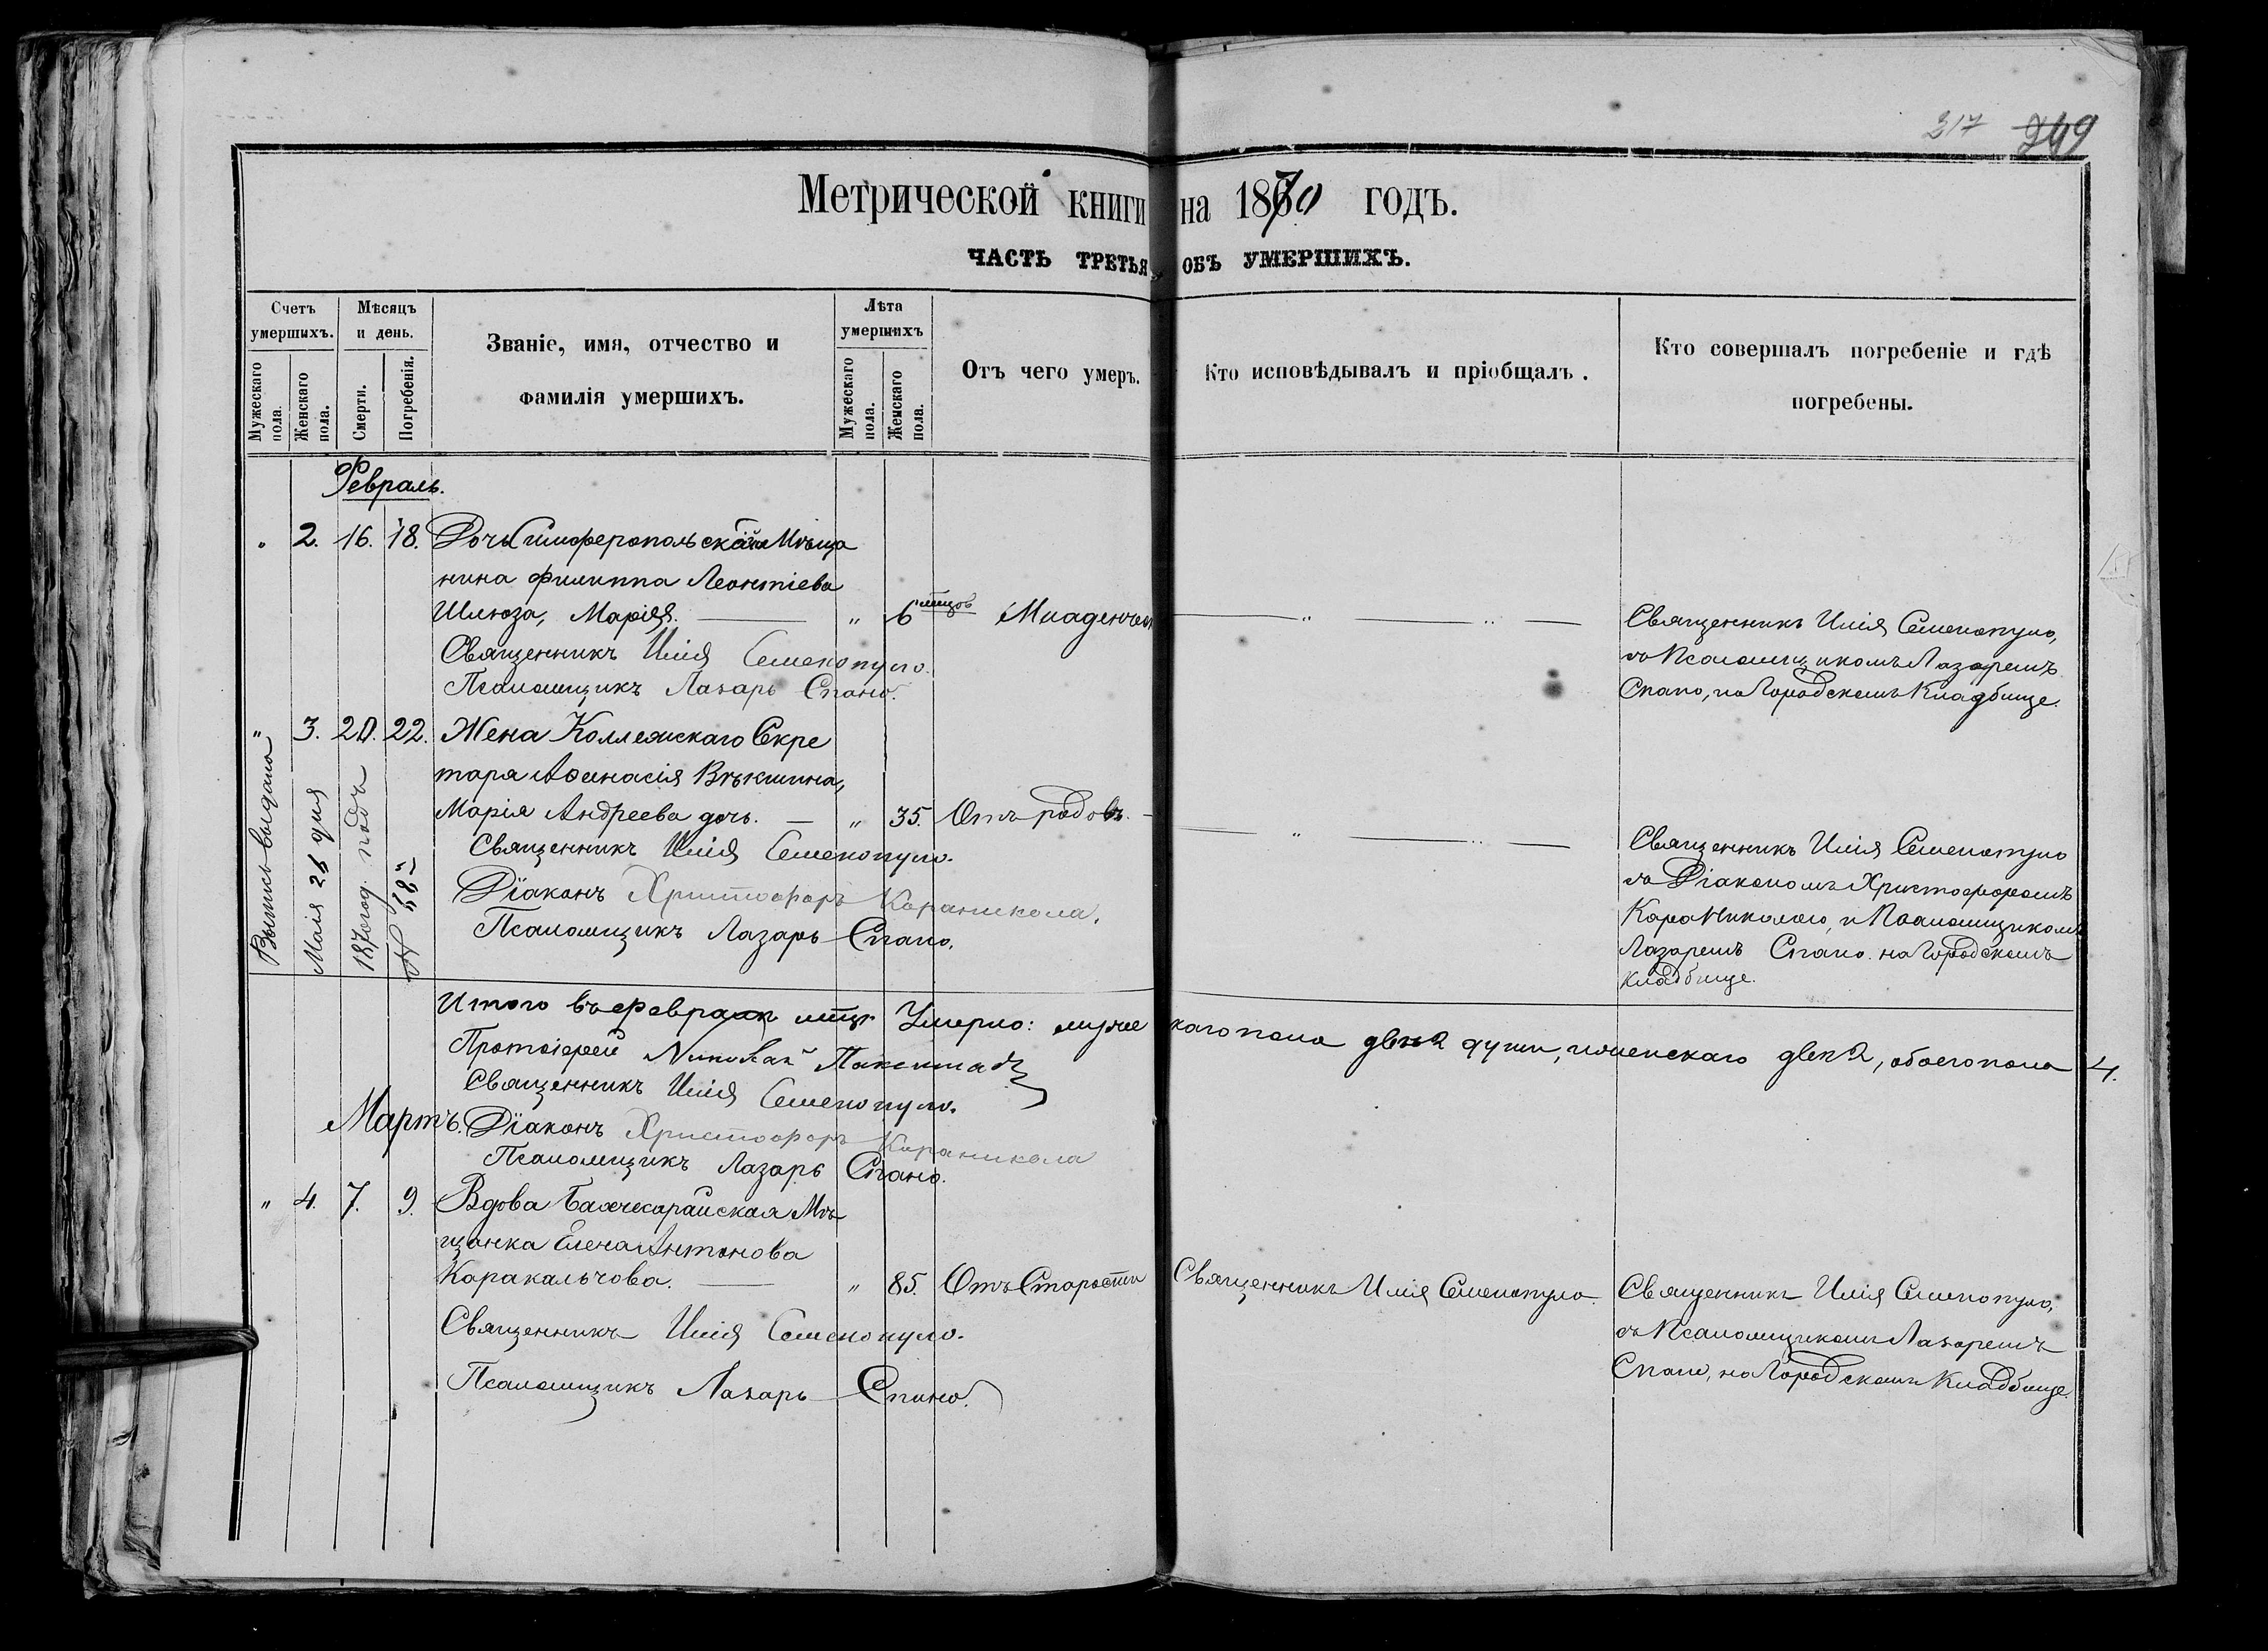 317 249
Метрической книги на 1870 годъ.
ЧАСТЬ ТРЕТЬЯ ОБЪ УМЕРШИХЪ.
Счетъ умершихъ.
Мужескаго пола.
Женскаго пола.
Мѣсяцъ и день.
Смерти.
Погребенія.
Званіе, имя, отчество и
фамилія умершихъ.
Лѣта умершихъ
Мужескаго пола.
Женскаго пола.
Отъ чего умеръ.
Кто исповѣдывалъ и пріобщалъ.
Кто совершалъ погребеніе и гдѣ
погребены.
Февраль.
" 2. 16. 18. Дочь Симферопольскаго Мѣща
нина Филиппа Леонтіева
Шлюза, Марія. " 6 мцов Младенчес
Священникъ Илія Семенопуло,
съ Псаломщикомъ Лазаремъ
Спано, на Городскомъ Кладбище.
Священникъ Илія Семенопуло.
Псаломщикъ Лазарь Спано.
" 3. 20. 22. Жена Коллежскаго Секре
таря Аѳанасія Вѣкшина,
Марія Андреева дочь. " 35. Отъ родовъ.
Священникъ Илія Семенопуло
съ Діакономъ Христофоромъ
Кара Николого, и Псаломщикомъ
Лазаремъ Спано. на Городскомъ
Кладбище.
Священникъ Илія Семенопуло.
Діаконъ Христофоръ Караникола.
Псаломщикъ Лазарь Спано.
Выпись выдана
Маія 26 дня
1870 год. подъ
№ 58
Итого въ феврале мцѣ Умерло: мужескаго пола двѣ души, женскаго двѣ, обоего пола 4.
Протоіерей Николай
Священникъ Илія Семенопуло.
Діаконъ Христофоръ Караникола
Псаломщикъ Лазарь Спано.
Мартъ.
" 4. 7. 9. Вдова Бахчисарайская Мѣ
щанка Елена Антонова
Каракальчова. " 85. Отъ Старости Священникъ Илія Семенопуло.
Священникъ Илія Семенопуло,
съ Псаломщикомъ Лазаремъ
Спано, на Городскомъ Кладбище.
Священникъ Илія Семенопуло.
Псаломщикъ Лазарь Спано.